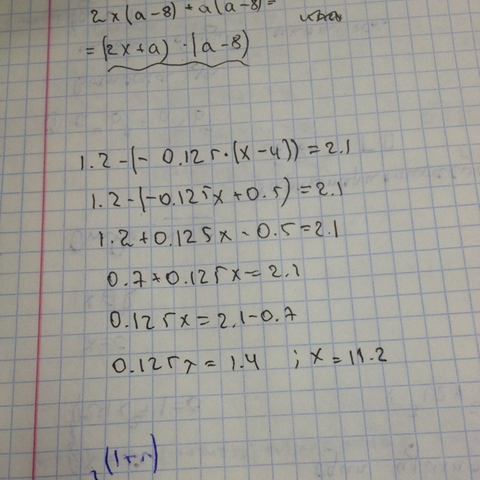 2x(a-8)+a(a-8)=
=(2x+a)·(a-8)
1.2-(-0.125·(x-4))=2.1
1.2-(-0.125x+0.5)=2.1
1.2+0.125x-0.5=2.1
0.7+0.125x=2.1
0.125x=2.1-0.7
0.125x=1.4 ; x=11.2